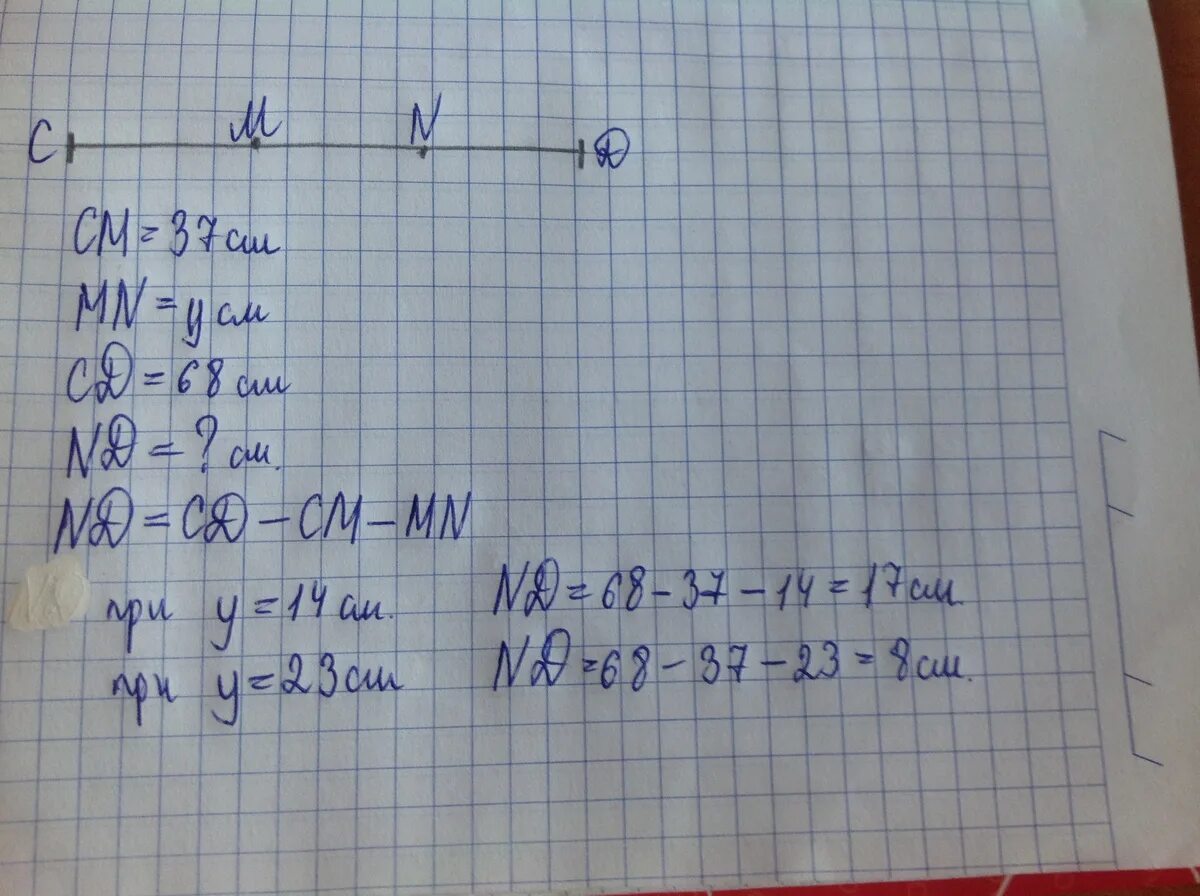 C M N D
CM = 37 см
MN = y см
CD = 68 см
ND = ? см.
ND = CD - CM - MN
при y = 14 см. ND = 68 - 37 - 14 = 17 см.
при y = 23 см ND = 68 - 37 - 23 = 8 см.